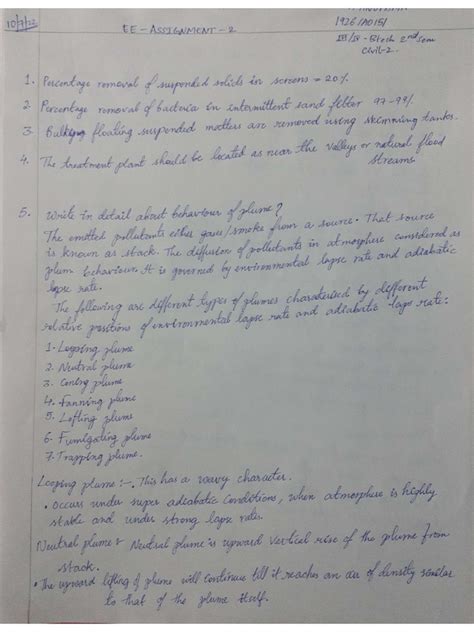 10/7/22
EE - ASSIGNMENT - 2
III/IV - Btech 2nd Sem
Civil-2
1. Percentage removal of suspended solids in screens = 20%
2. Percentage removal of bacteria in intermittent sand filter 97-99%
3. Bulking floating suspended matters are removed using skimming tanks.
4. The treatment plant should be located as near the valleys or natural flood
streams
5. Write in detail about behaviour of plume?
The emitted pollutants either gases/smoke from a source. That source
is known as stack. The diffusion of pollutants in atmosphere considered as
plum behaviour. It is governed by environmental lapse rate and adiabatic
lapse rate.
The following are different types of plumes charaterised by different
relative positions of environmental lapse rate and adiabatic laps rate:
1. Looping plume
2. Neutral plume
3. Coning plume
4. Fanning plume
5. Lofting plume
6. Fumigating plume
7. Trapping plume.
Looping plume :- . This has a wavy character.
• Occurs under super adiabatic conditions, when atmosphere is highly
stable and under strong lapse rates.
Neutral plume: Neutral plume is upward vertical rise of the plume from
stack.
• The upward lifting of plume will continue till it reaches an air of density similar
to that of the plume itself.